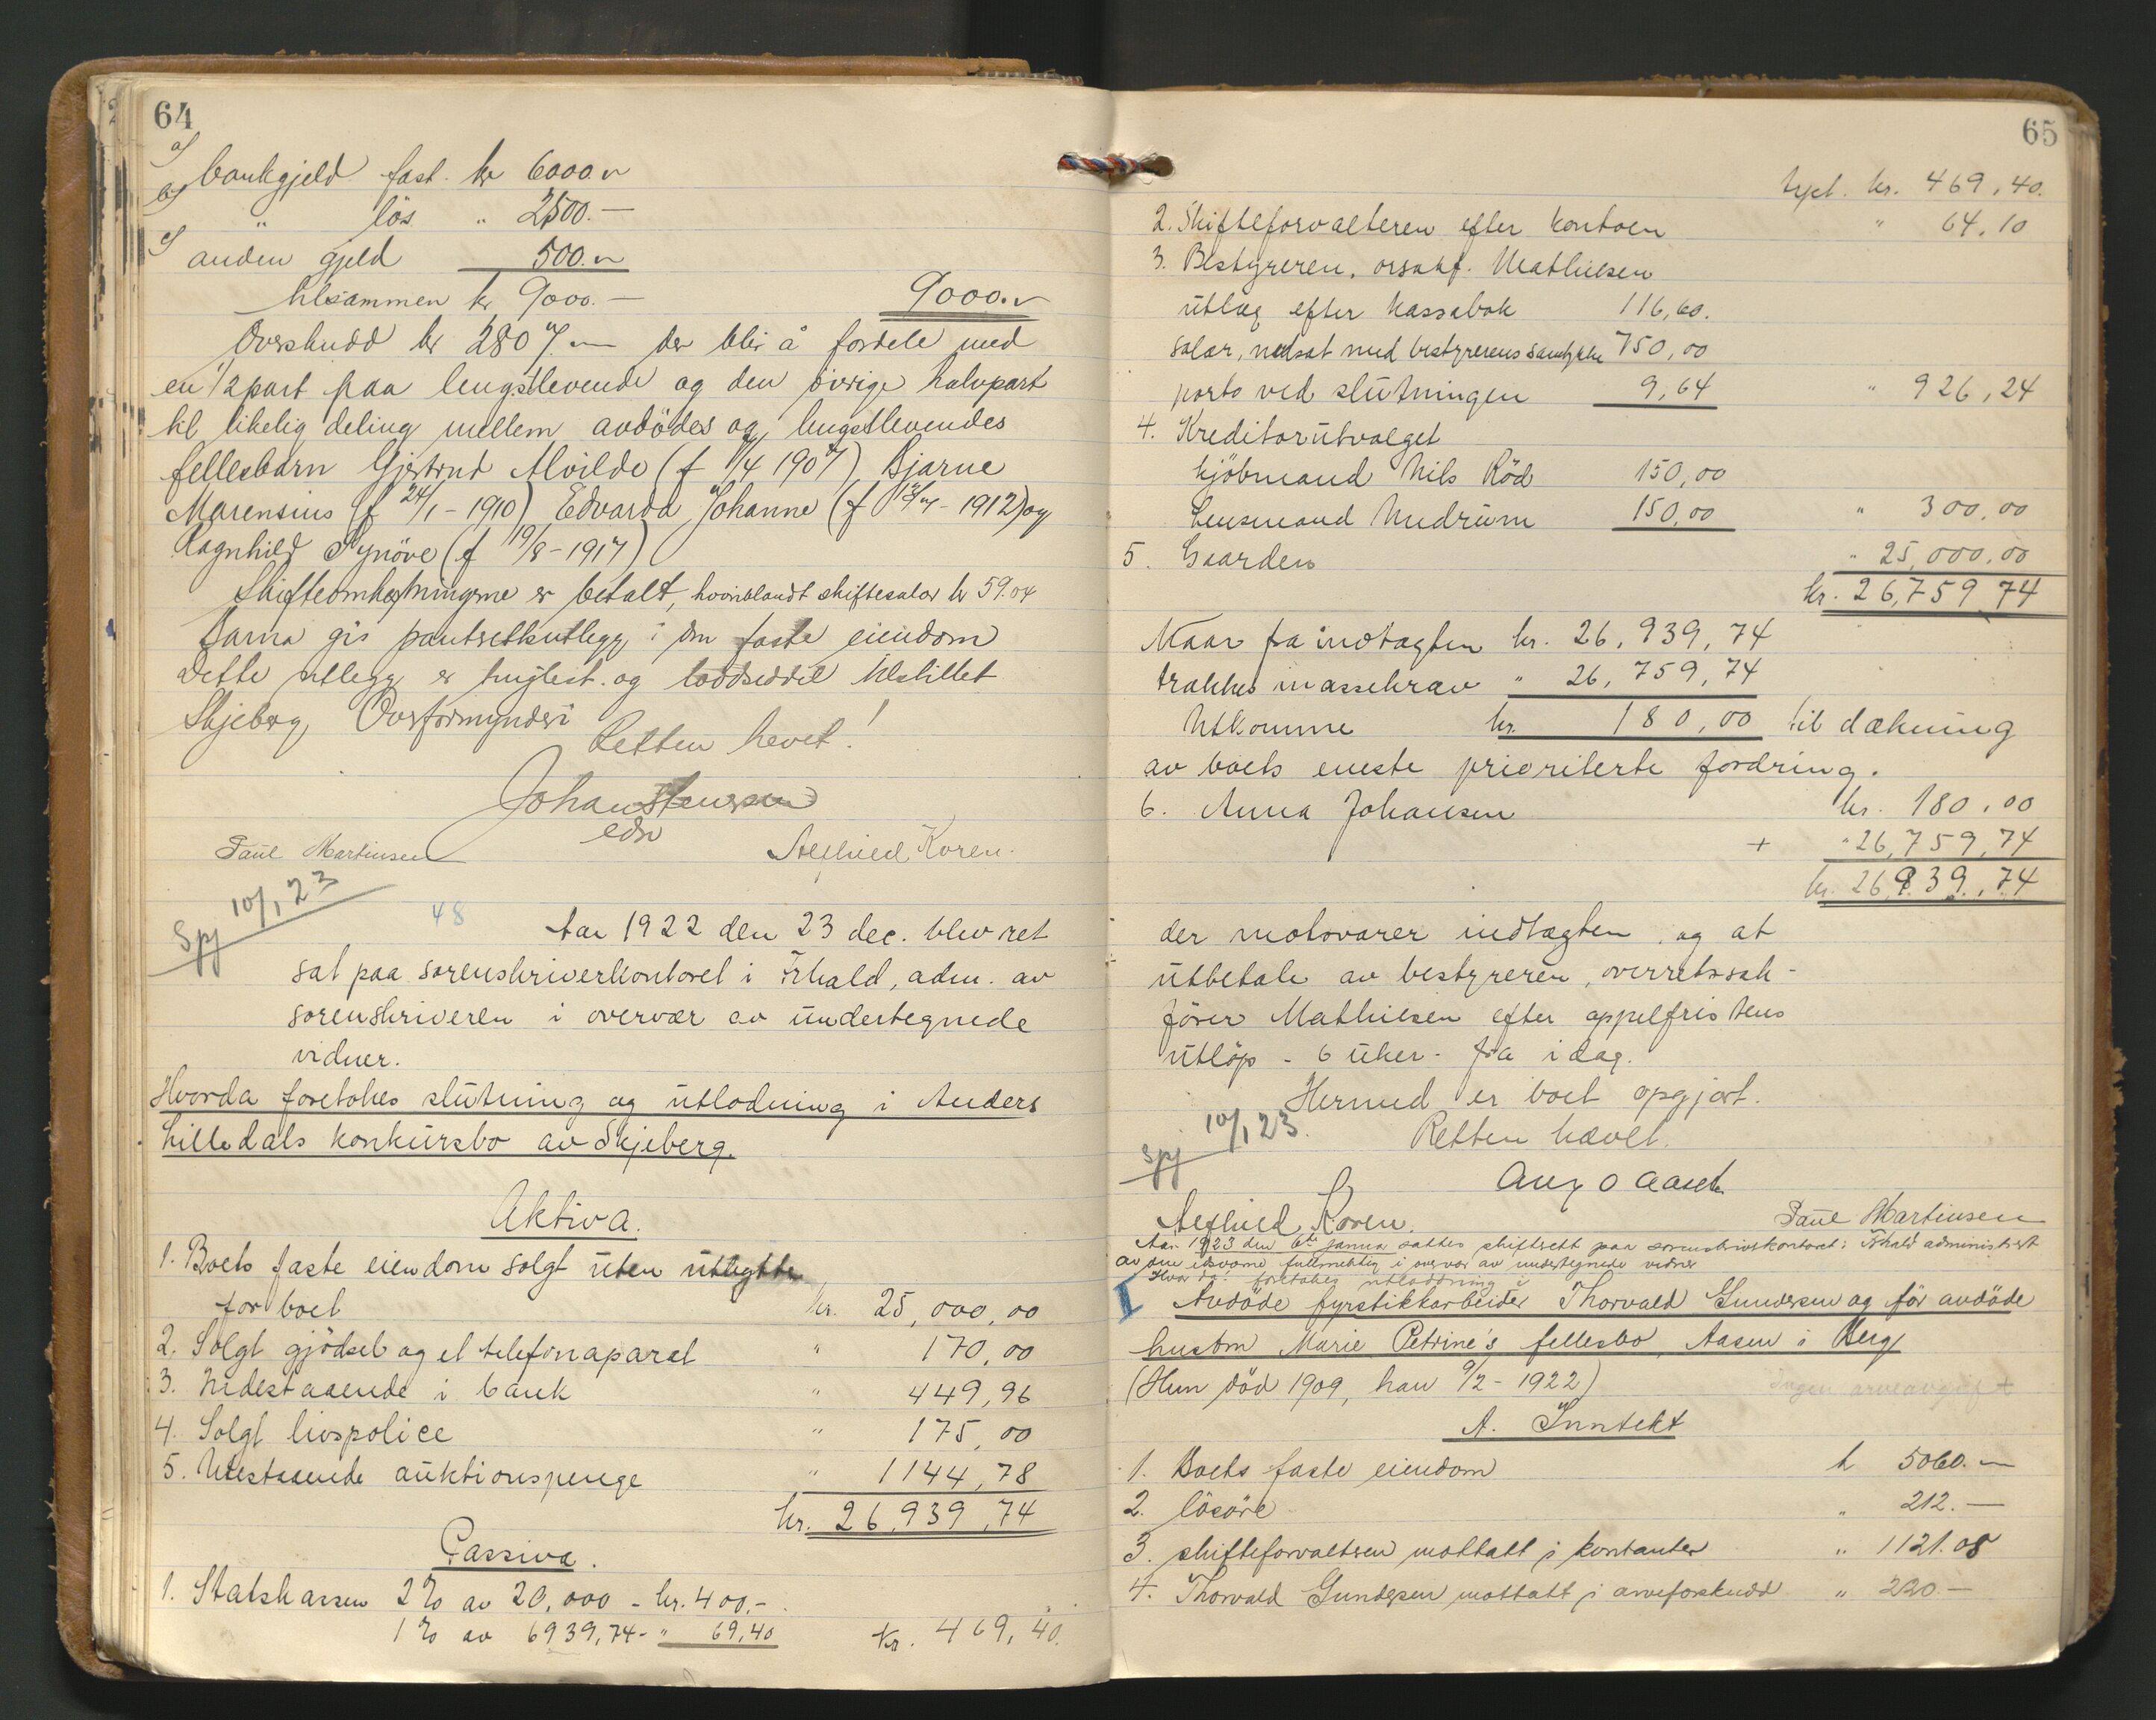 64
a) bankgjeld fast. kr 6000.–
b) " løs " 2500.–
c) anden gjeld 500.–
tilsammen kr 9000.– 9000.–
Overskudd kr 2807.– der blir å fordele med
en 1/2 part paa lengstlevende og den øvrige halvpart
til likelig deling mellem avdødes og lengstlevendes
fellesbarn Gjertrud Alvilde (f 1/4 1907), Bjarne
Marensius (f 24/1 - 1910) Edvarda Johanne (f 1912) og
Ragnhild Synöve (f 19/8 - 1917)
Skifteomkostningerne er betalt, hvoriblandt skiftesalar kr 59.04
Barna gis pantretsutlegg i den faste eiendom
Dette utlegg er tinglest og loddseddel tilstillet
Skjeberg Overformynderi
Retten hevet!
Johan Stenersen
edsv
Paul Martinsen Koren.
Spj 10/1 23
48
Aar 1922 den 23 dec. blev ret
sat paa sorenskriverkontoret i Frhald, adm. av
sorenskriveren i overvær av undertegnede
vidner.
Hvorda foretokes slutning og utlodning i Anders
Lilledals konkursbo av Skjeberg.
Aktiva.
1. Boets faste eiendom solgt uten utbytte
for boet kr. 25,000,00
2. Solgt gjödsel og et telefonaparat " 170,00
3. Indestaaende i bank " 449,96
4. Solgt livspolice " 175,00
5. Utestaaende auktionspenge " 1144,78
kr. 26,939,74
Passiva.
1. Statskassen 2% av 20,000 - kr. 400,-
1% av 6939,74 - " 69,40 kr. 469,40.
65
kr. 469,40.
2. Skifteforvalteren efter kontoen " 64,10
3. Bestyreren, orsakf. Mathiesen
utlæg efter kassabok 116,60.
salær, nedsat med bestyrerens samtykke 750,00
porto ved slutningen 9,64 " 926,24
4. Kreditorutvalget
kjöbmand Nils Röd 150,00
Lensmand Mudrum 150,00 " 300,00
5. Gaarden " 25,000,00
kr. 26,759,74
Naar fra indtægten kr. 26,939,74
trækkes massekrav " 26,759,74
Utkomme kr. 180,00 til dækning
av boets eneste prioriterte fordring.
6. Anna Johansen kr. 180,00
+ " 26,759,74
kr. 26,939,74
der motsvarer indtægten og at
utbetale av bestyreren, overretssak-
förer Mathiesen efter appelfristens
utlöp - 6 uker - fra idag.
Hermed er boet opgjort.
Spj 10/1 23. Retten hævet.
Aug O Aasch
Koren. Paul Martinsen
Aar 1923 den 6te januar sattes skifterett paa sorenskriverkontoret i Frhald administrert
av den edsvorne fullmektig i overvær av undertegnede vidner
Hvorda foretokes utloddning i
I Avdöde fyrstikkarbeider Thorvald Gundersen og för avdöde
hustru Marie Petrine's fellesbo, Aasen i Berg
(Hun död 1909, han 9/2 - 1922) Ingen arveavgift
A. Inntekt
1. Boets faste eiendom k 5060.–
2. lösöre " 212.–
3. skifteforvalteren mottatt i kontanter " 1121.08
4. Thorvald Gundersen mottatt i arveforskudd " 220.–